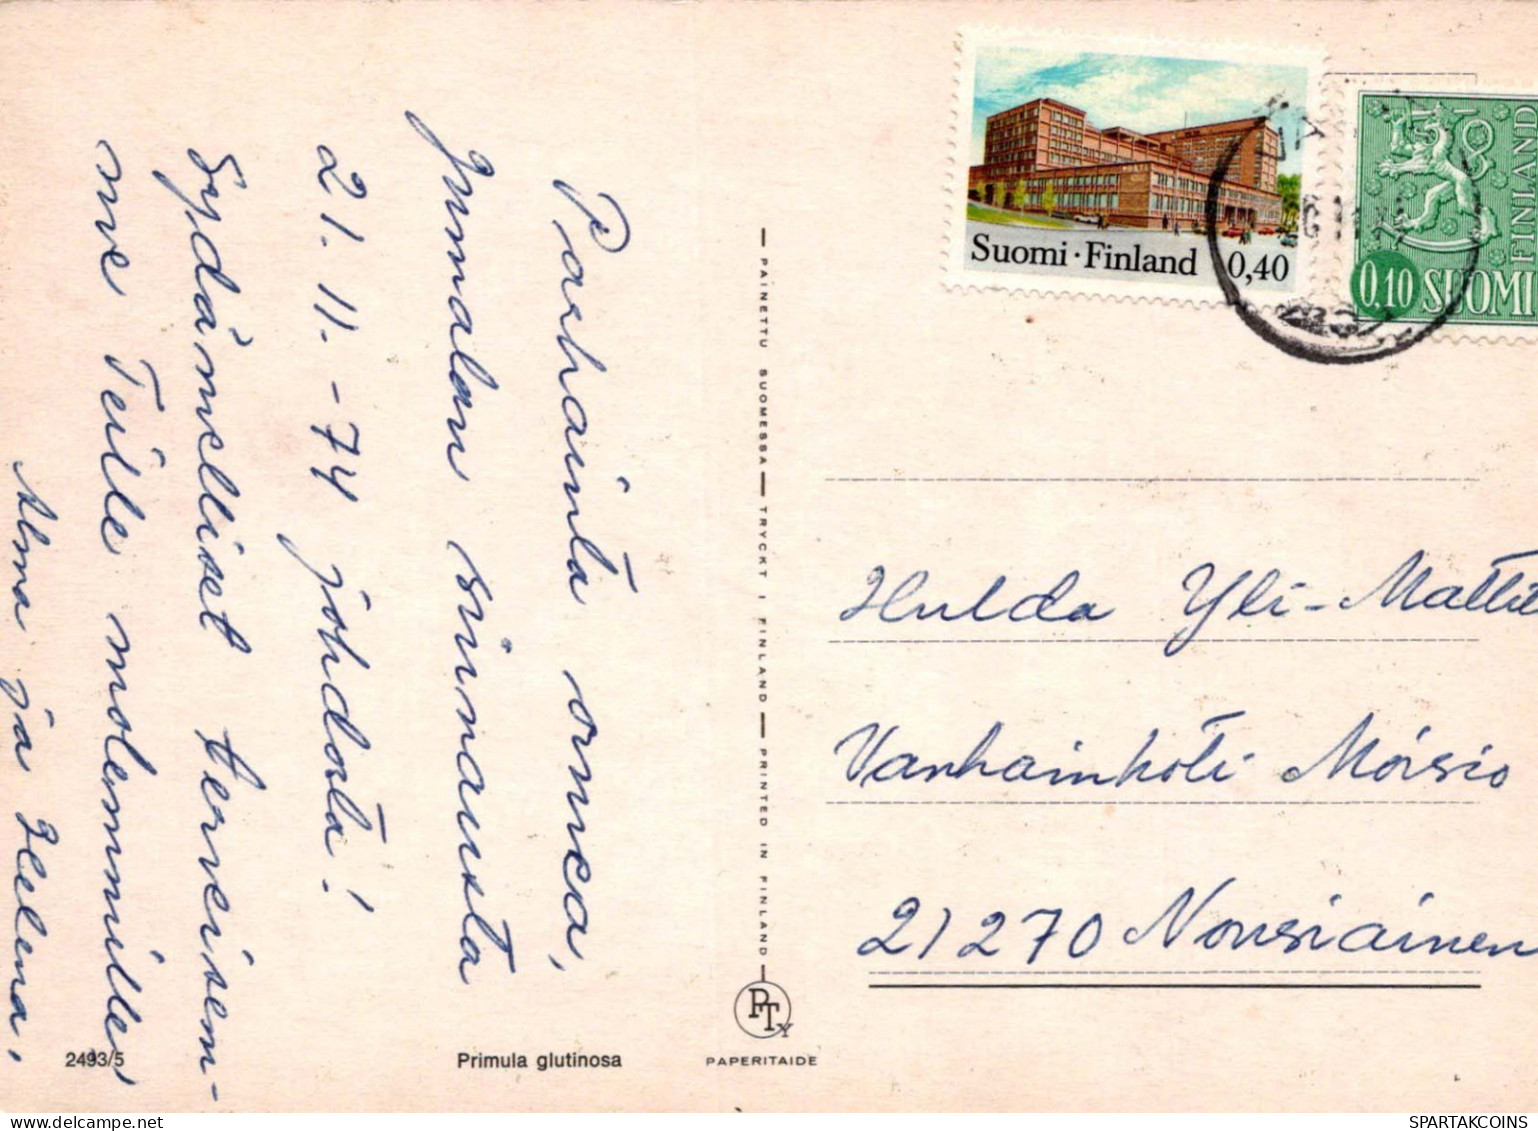 Parhainta onnea,
Jumalan siunausta
21.11.-74 johdosta!
Sydämelliset terveisem-
me Teille molemmille!
Alma ja Helena.
2493/5
Primula glutinosa
PAINETTU SUOMESSA — TRYCKT I FINLAND — PRINTED IN FINLAND
PTy
PAPERITAIDE
Suomi · Finland 0,40
FINLAND
0,10 SUOMI
Hulda Yli-Mattila
Vanhainkoti Moisio
21270 Nousiainen
SPARTAKCOINS